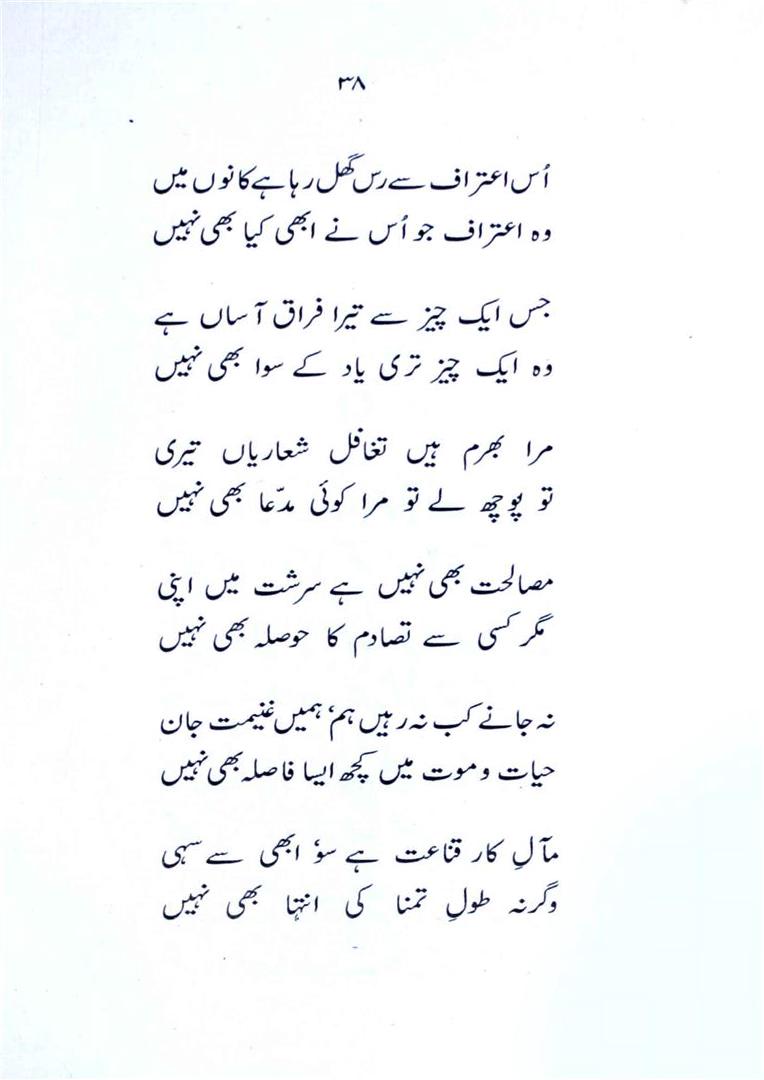 ۳۸
اُس اعتراف سے رس گھل رہا ہے کانوں میں
وہ اعتراف جو اُس نے ابھی کیا بھی نہیں
جس ایک چیز سے تیرا فراق آساں ہے
وہ ایک چیز تری یاد کے سوا بھی نہیں
مرا بھرم ہیں تغافل شعاریاں تیری
تو پوچھ لے تو مرا کوئی مدّعا بھی نہیں
مصالحت بھی نہیں ہے سرشت میں اپنی
مگر کسی سے تصادم کا حوصلہ بھی نہیں
نہ جانے کب نہ رہیں ہم، ہمیں غنیمت جان
حیات و موت میں کچھ ایسا فاصلہ بھی نہیں
مآلِ کار قناعت ہے سو، ابھی سے سہی
وگرنہ طولِ تمنا کی انتہا بھی نہیں